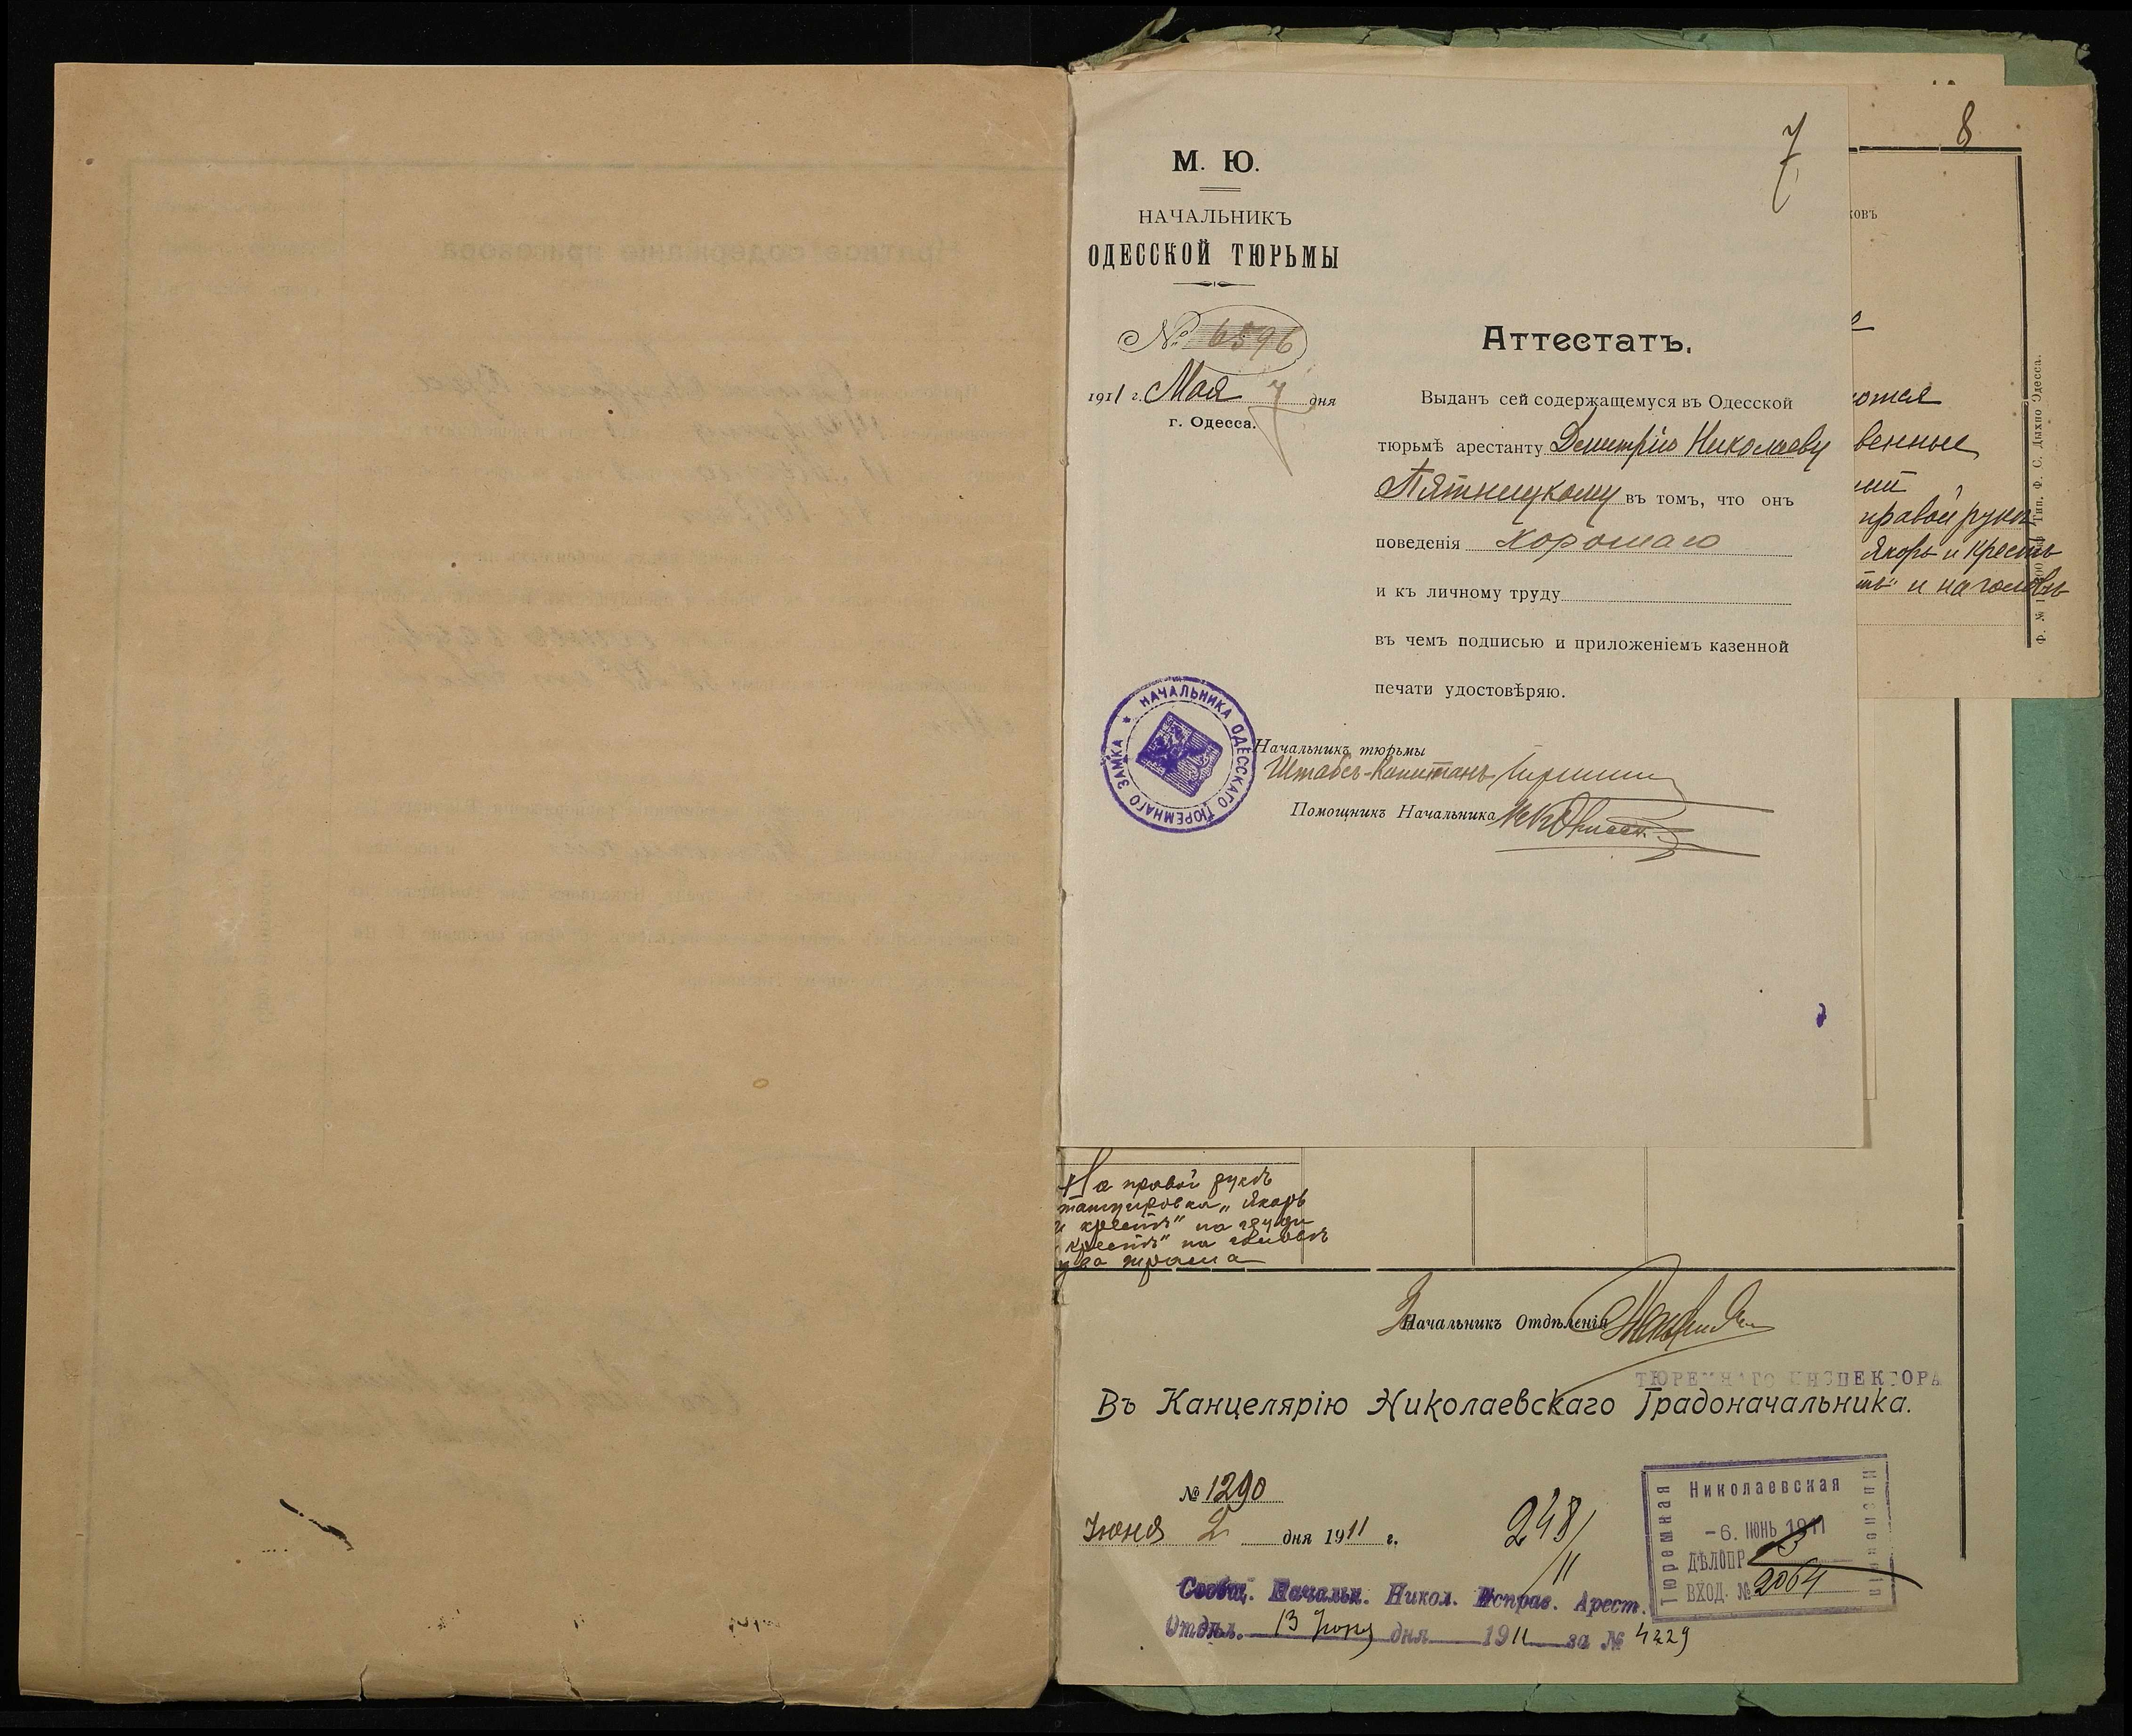 7
8
М. Ю.
НАЧАЛЬНИКЪ
ОДЕССКОЙ ТЮРЬМЫ
№ 6596
1911 г. Мая 7 дня
г. Одесса.
Аттестатъ.
Выданъ сей содержащемуся въ Одесской
тюрьмѣ арестанту Демитрію Николаеву
Пятницкому въ томъ, что онъ
поведенія хорошаго
и къ личному труду
въ чемъ подписью и приложеніемъ казенной
печати удостовѣряю.
НАЧАЛЬНИКА ОДЕССКАГО ТЮРЕМНАГО ЗАМКА
Начальникъ тюрьмы
Штабсъ-Капитанъ
Помощникъ Начальника
ковъ
ются
венные
правой рукѣ
якорь и крестъ
тъ" и на головѣ
Тип. Ф. С. Дыхно Одесса.
На правой рукѣ
татуировка „якорь
и крестъ" на груди
крестъ" на головѣ
два шрама
Начальникъ Отдѣленія
ТЮРЕМНАГО ИНСПЕКТОРА
Въ Канцелярію Николаевскаго Градоначальника.
№ 1290
Іюня 2 дня 1911 г.
248/11
Николаевская
Тюремная
Инспекція
-6. ІЮНЬ 1911
ДѢЛОПР. 3
ВХОД. № 2064
Сообщ. Начальн. Никол. Исправ. Арест.
Отдѣл. 13 Іюня дня 1911 за № 4229